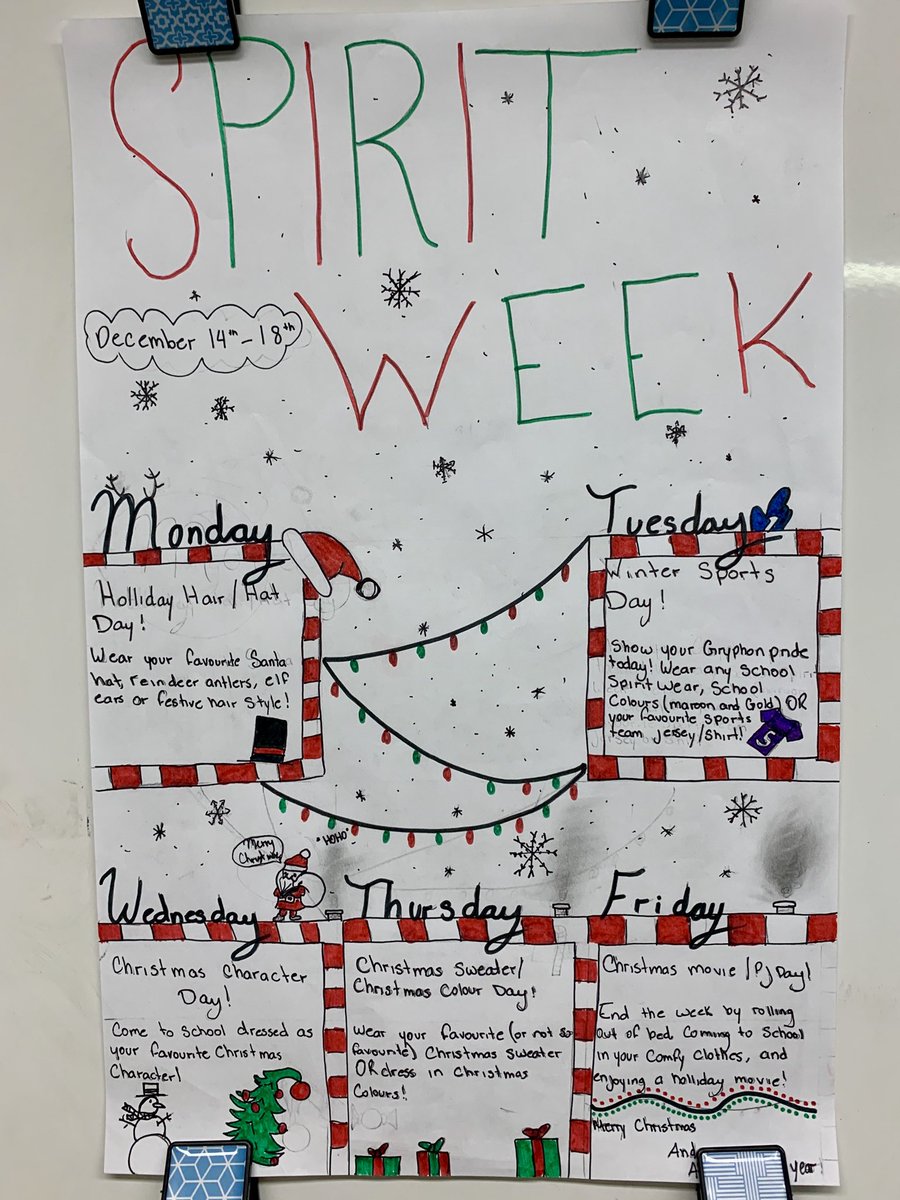 SPIRIT
WEEK
December 14th-18th
Monday
Holliday Hair/Hat
Day!
Wear your favourite Santa
hat, reindeer antlers, elf
ears or festive hair Style!
Tuesday
Winter Sports
Day!
Show your Gryphon pride
today! Wear any School
Spirit Wear, School
Colours (maroon and Gold) OR
your favourite sports
team jersey/Shirt!
S
Merry
Christmas
"HOHO"
Wednesday
Christmas Character
Day!
Come to School dressed as
your favourite Christmas
Character!
Thursday
Christmas Sweater/
Christmas Colour Day!
Wear your favourite (or not so
favourite) Christmas Sweater
OR dress in Christmas
Colours!
Friday
Christmas movie/Pj Day!
End the week by rolling
Out of bed, Coming to School
in your Comfy Clothes, and
enjoying a holliday movie!
Merry Christmas
And
year!